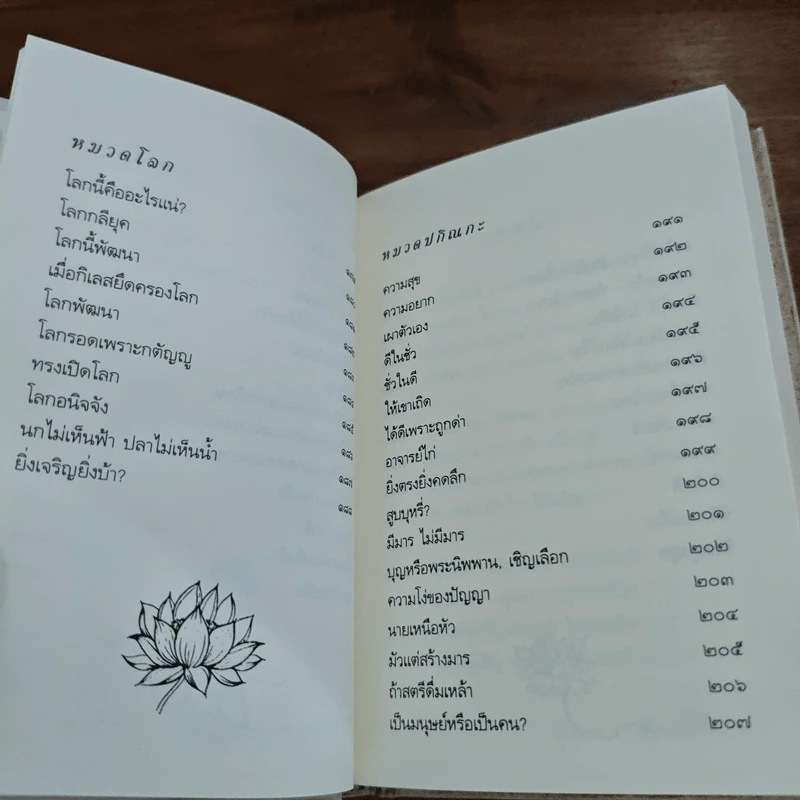 หมวดโลก
โลกนี้คืออะไรแน่?
โลกกลียุค
โลกนี้พัฒนา
เมื่อกิเลสยึดครองโลก
โลกพัฒนา
โลกรอดเพราะกตัญญู
ทรงเปิดโลก
โลกอนิจจัง
นกไม่เห็นฟ้า ปลาไม่เห็นน้ำ ๑๘๗
ยิ่งเจริญยิ่งบ้า? ๑๘๘
หมวดปกิณกะ
ความสุข ๑๙๑
ความอยาก ๑๙๒
เผาตัวเอง ๑๙๓
ดีในชั่ว ๑๙๔
ชั่วในดี ๑๙๕
ให้เขาเถิด ๑๙๖
ได้ดีเพราะถูกด่า ๑๙๗
อาจารย์ไก่ ๑๙๘
ยิ่งตรงยิ่งคดลึก ๑๙๙
สูบบุหรี่? ๒๐๐
มีมาร ไม่มีมาร ๒๐๑
บุญหรือพระนิพพาน, เชิญเลือก ๒๐๒
ความโง่ของปัญญา ๒๐๓
นายเหนือหัว ๒๐๔
มัวแต่สร้างมาร ๒๐๕
ถ้าสตรีดื่มเหล้า ๒๐๖
เป็นมนุษย์หรือเป็นคน? ๒๐๗